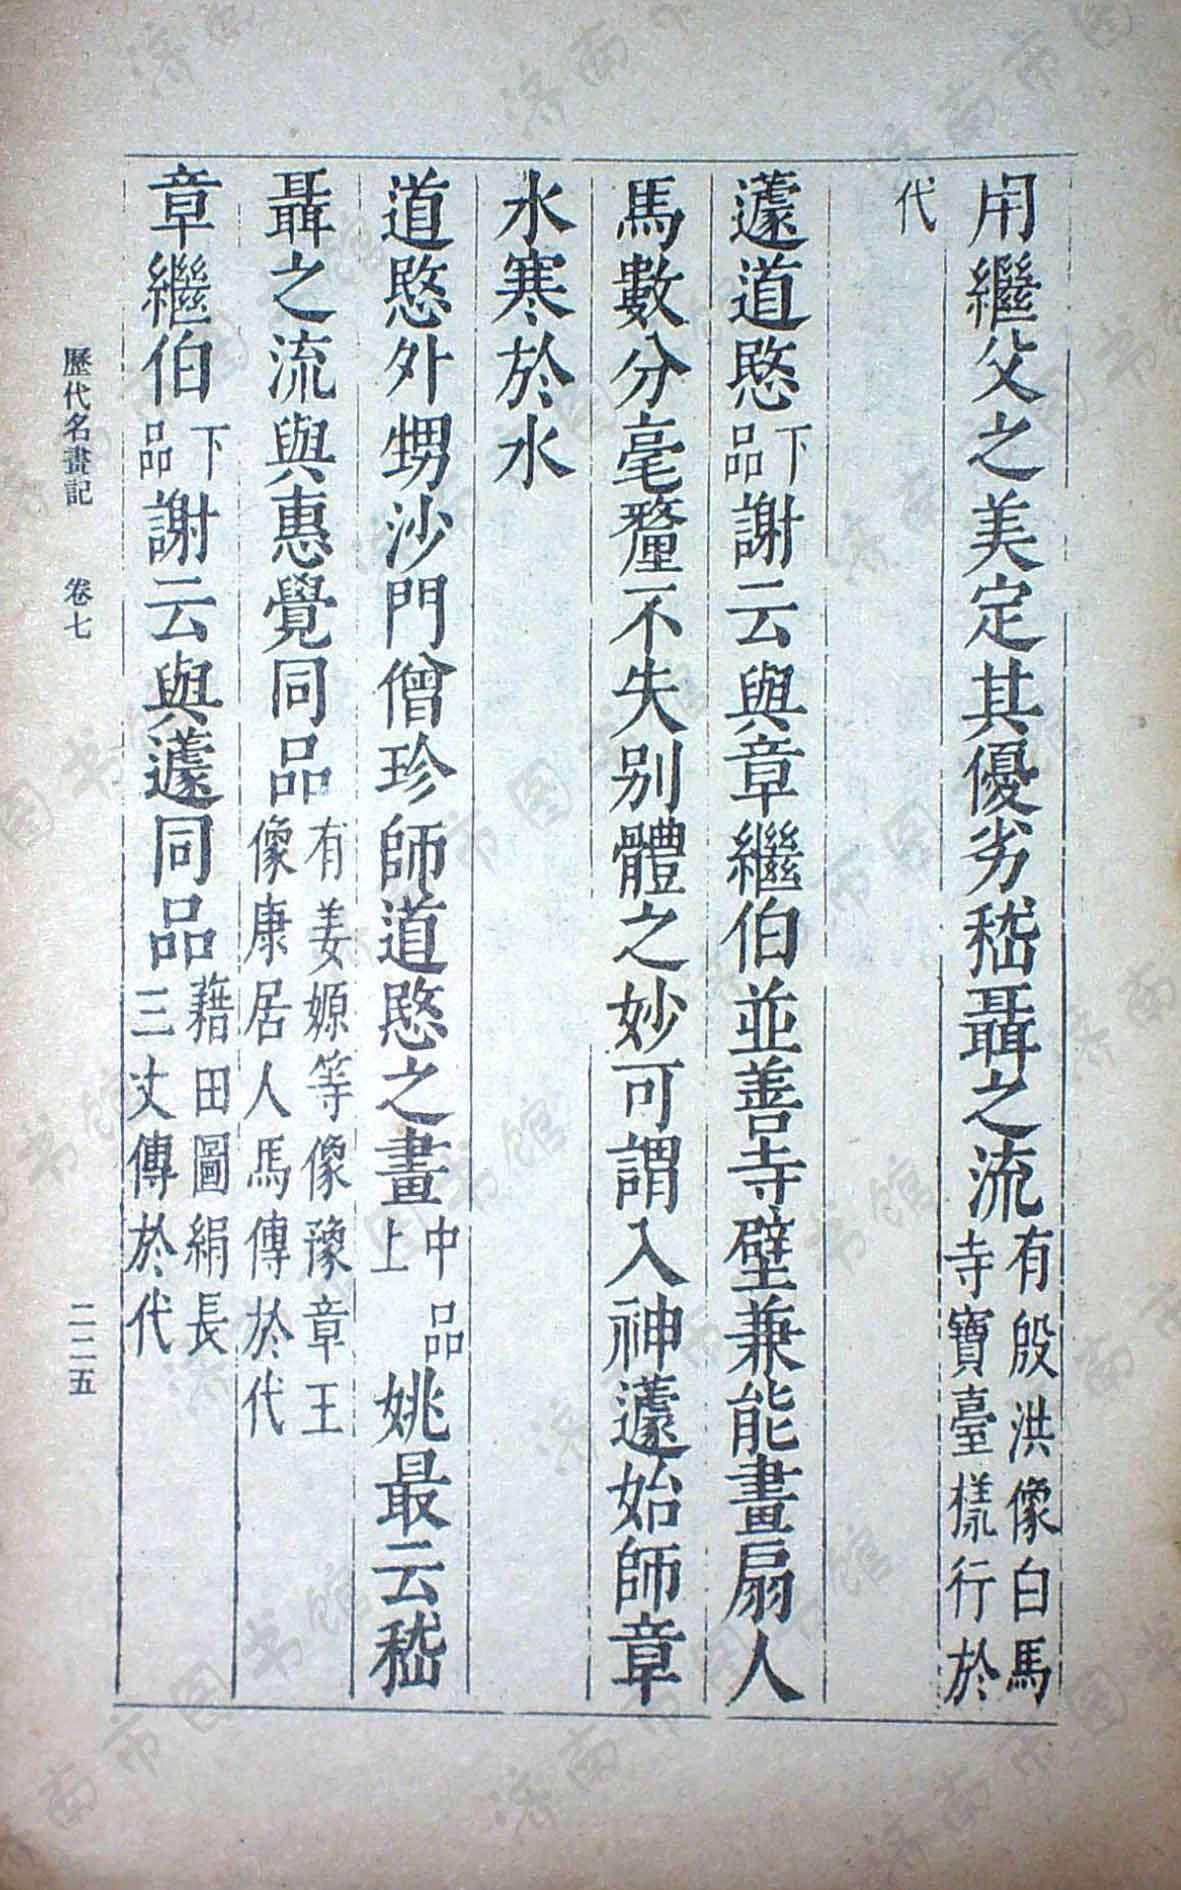 用繼父之美定其優劣嵇聶之流有殷洪像白馬寺寶臺樣行於
代
蘧道愍下品謝云與章繼伯並善寺壁兼能畫扇人
馬數分毫釐不失別體之妙可謂入神蘧始師章
水寒於水
道愍外甥沙門僧珍師道愍之畫中品上姚最云嵇
聶之流與惠覺同品有姜嫄等像豫章王像康居人馬傳於代
章繼伯下品謝云與蘧同品藉田圖絹長三丈傳於代
歷代名畫記 卷七 二二五
济南市图书馆